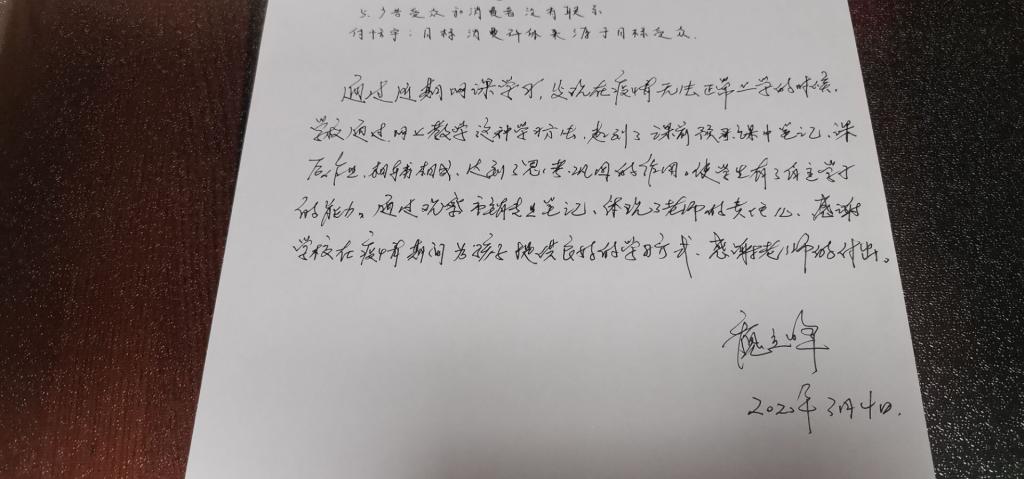 5.广告受众和消费者没有联系
付恒宇:目标消费群体来源于目标受众.
通过近期网课学习,发现在疫情无法正常上学的时候,
学校通过网上教学这种学习方法,起到了课前预习.课中笔记,课
后作业,相辅相成,达到了思考.巩固的作用。使学生有了自主学习
的能力。通过观察市销专业笔记、体现了老师的责任心、感谢
学校在疫情期间为孩子提供良好的学习方式、感谢老师的付出。
2020年3月4日.